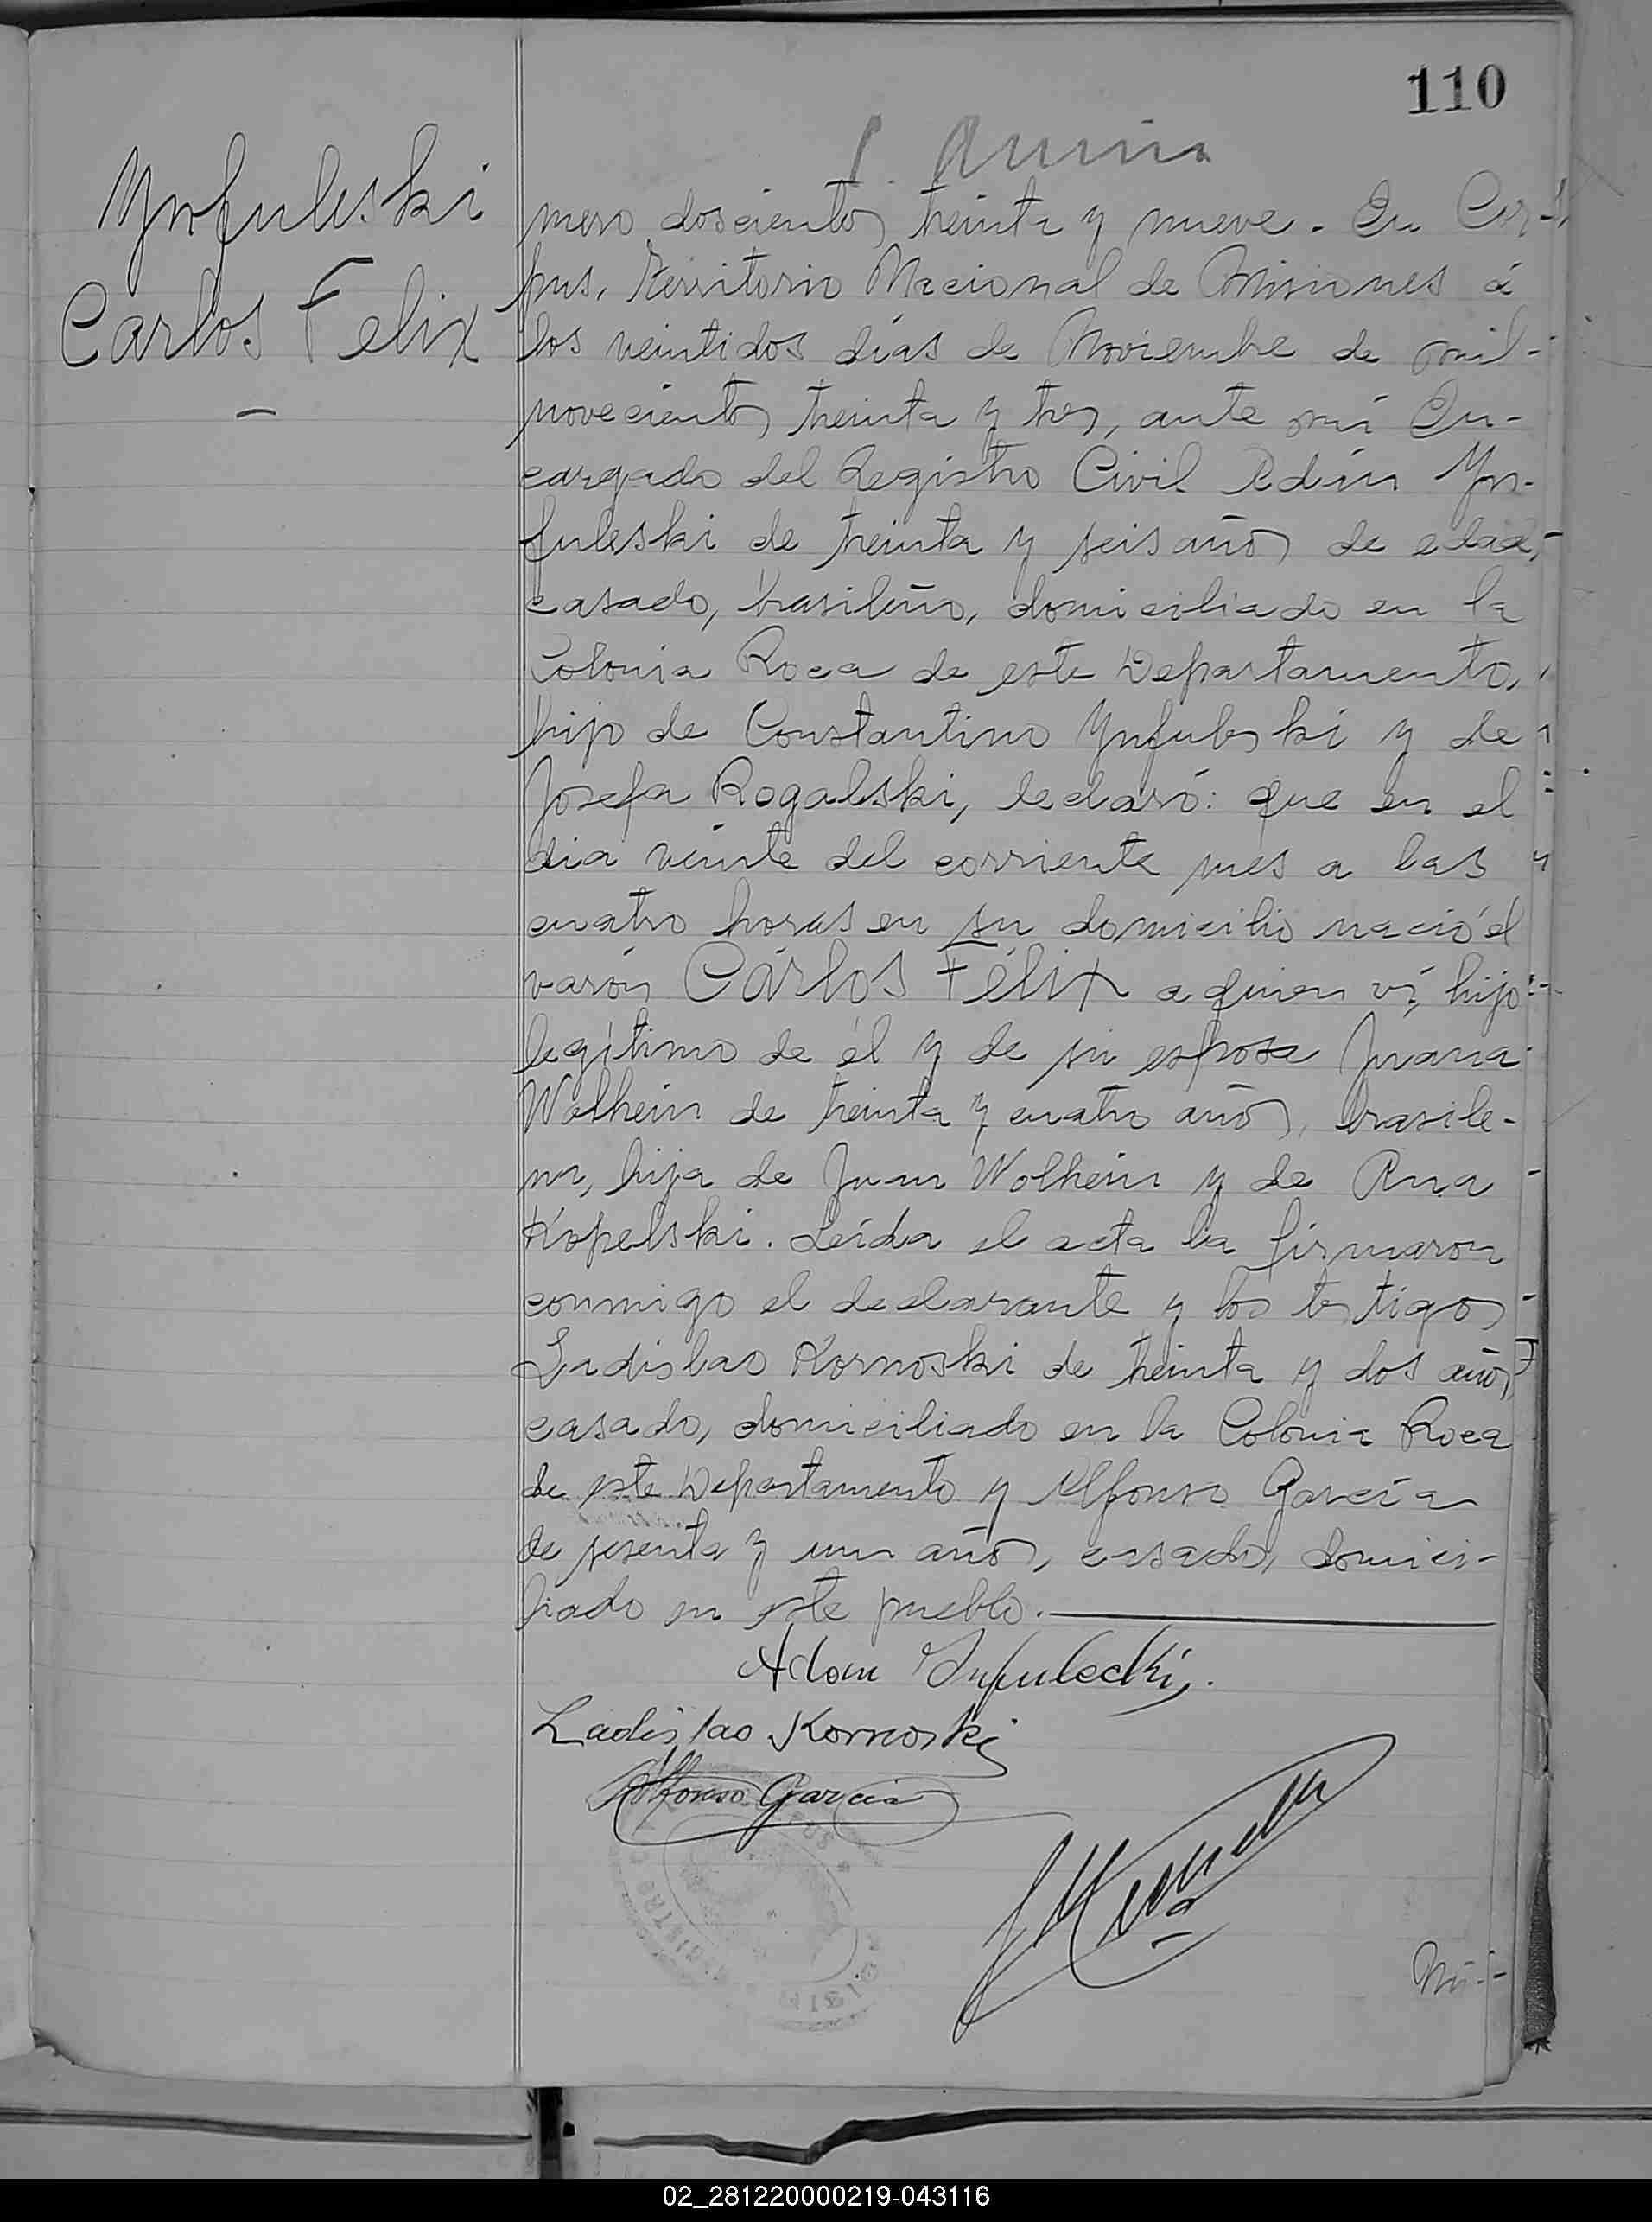 110
Ynfuleski
Carlos Felix
mero doscientos treinta y nueve. En Cor-
pus, Territorio Nacional de Misiones á
los veintidos días de Noviembre de mil
novecientos treinta y tres, ante mí En-
cargado del Registro Civil Adán Yn-
fuleski de treinta y seis años de edad,
casado, brasileño, domiciliado en la
Colonia Roca de este Departamento,
hijo de Constantino Ynfuleski y de
Josefa Rogalski, declaró: que en el
dia veinte del corriente mes a las
cuatro horas en su domicilio nació el
varón Cárlos Félix a quien ví, hijo
legítimo de él y de su esposa Juana
Wolhein de treinta y cuatro años, brasile-
na, hija de Juan Wolhein y de Ana
Kopelski. Leída el acta la firmaron
conmigo el declarante y los testigos
Ladislao Kornoski de treinta y dos años,
casado, domiciliado en la Colonia Roca
de este Departamento y Alfonso García
de sesenta y un años, casado, domici-
liado en este pueblo.
Adam Infulecki.
Ladislao Kornoski
Alfonso Garcia
Nú-
02_281220000219-043116